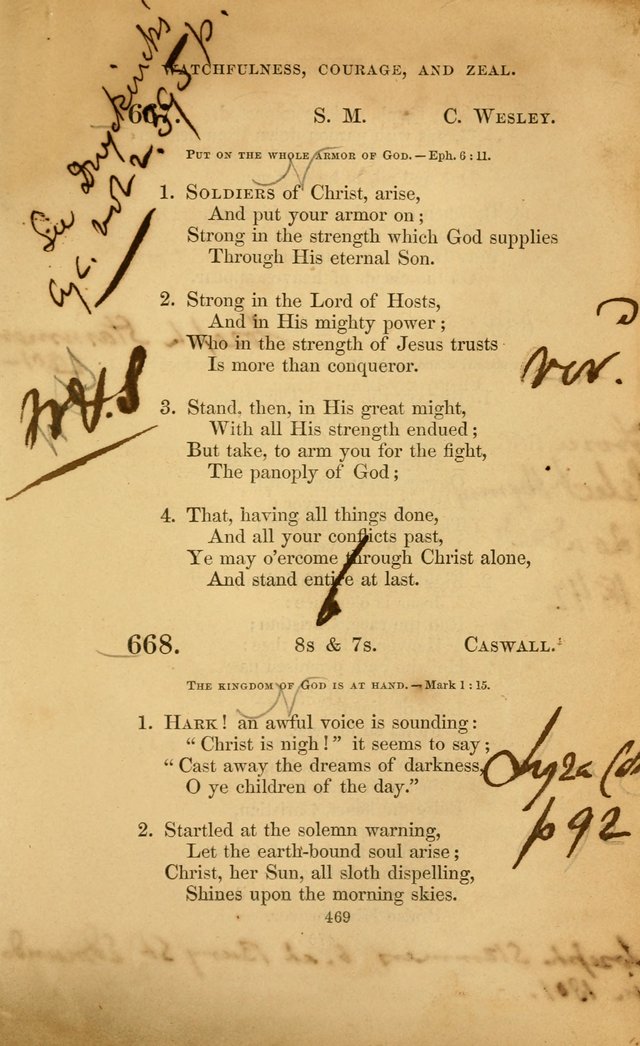 WATCHFULNESS, COURAGE, AND ZEAL.
See Duyckinck's
Cyc. vol 2. 395 p.
S. M. C. WESLEY.
PUT ON THE WHOLE ARMOR OF GOD. — Eph. 6 : 11.
1. SOLDIERS of Christ, arise,
And put your armor on ;
Strong in the strength which God supplies
Through His eternal Son.
2. Strong in the Lord of Hosts,
And in His mighty power ;
Who in the strength of Jesus trusts
Is more than conqueror.
3. Stand, then, in His great might,
With all His strength endued ;
But take, to arm you for the fight,
The panoply of God ;
4. That, having all things done,
And all your conflicts past,
Ye may o'ercome through Christ alone,
And stand entire at last.
668. 8s & 7s. CASWALL.
THE KINGDOM OF GOD IS AT HAND. — Mark 1 : 15.
1. HARK ! an awful voice is sounding :
“ Christ is nigh ! ” it seems to say ;
“ Cast away the dreams of darkness,
O ye children of the day.”
Lyra
p 92
2. Startled at the solemn warning,
Let the earth-bound soul arise ;
Christ, her Sun, all sloth dispelling,
Shines upon the morning skies.
469